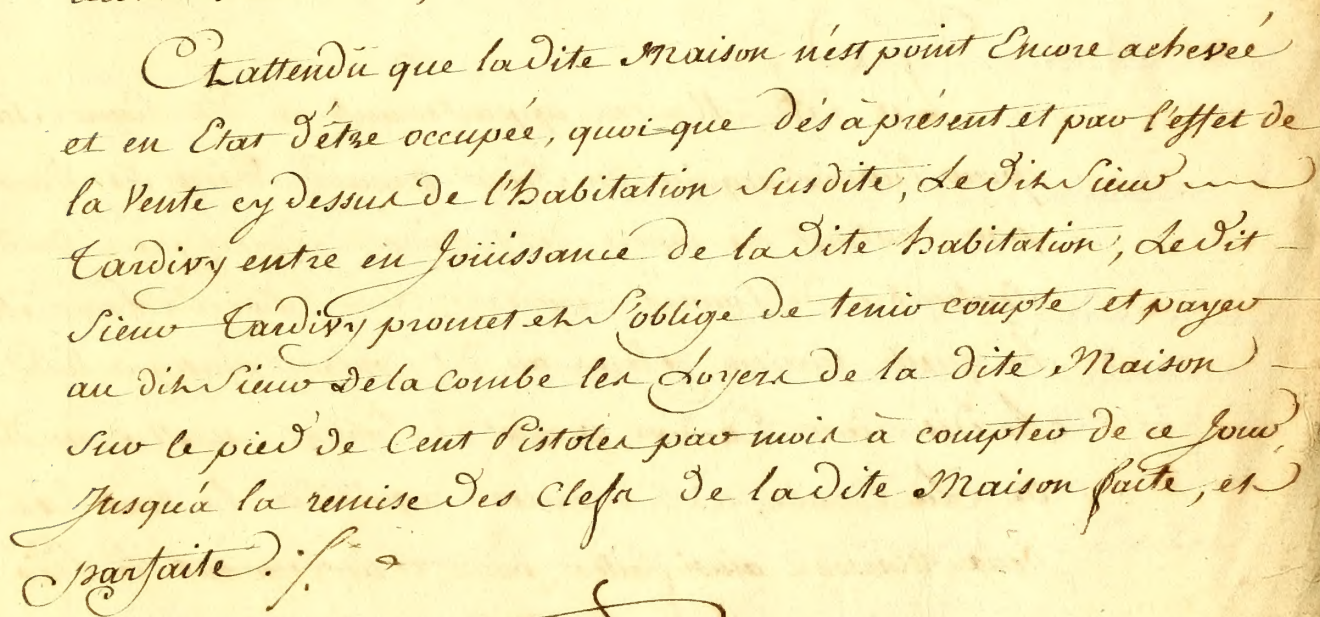 Et attendü que la dite Maison n'ést point Encore acheveé
et en Etat d'étre occupeé, quoi-que dés à présent et par l'effet de
la Vente cy dessus de l'habitation Susdite, Le dit Sieur
Tardivy entre en Joüissance de la dite habitation, Le dit
Sieur Tardivy promet et S'oblige de tenir compte et payer
au dit Sieur De la Combe les Loyers de la dite Maison
Sur le pied de Cent Pistoles par mois à compter de ce Jour
Jusqu'á la remise des Clefs de la dite Maison faite, et
parfaite ./.